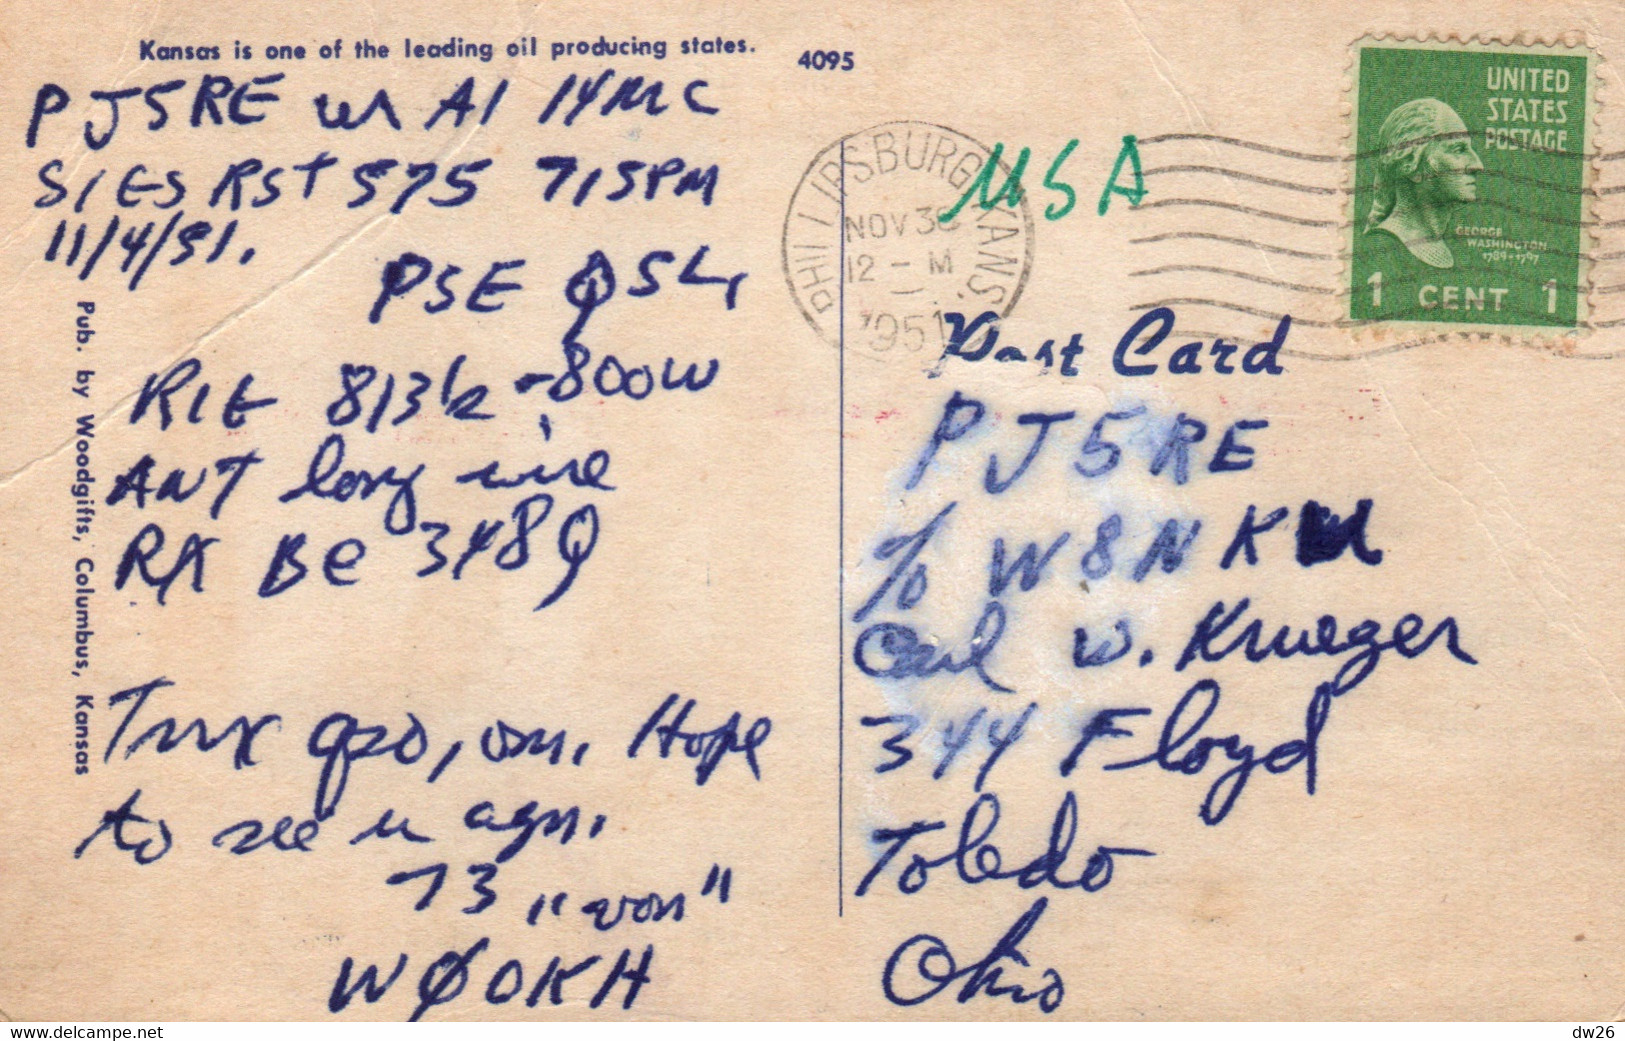 Kansas is one of the leading oil producing states.
4095
PJ5RE ur A1 14MC
SIES RST 575 715PM
11/4/51.
PSE QSL,
RIG 813's - 800W
ANT long wire
RX BC 348Q
Tnx qso, om. Hope
to see u agn.
73 "von"
WØOKH
Pub. by Woodgifts, Columbus, Kansas
PHILLIPSBURG KANS.
NOV 30
12 - M
1951
USA
UNITED
STATES
POSTAGE
GEORGE
WASHINGTON
1789-1797
1 CENT 1
Post Card
PJ5RE
c/o W8NK
Carl W. Krueger
344 Floyd
Toledo
Ohio
delcampe.net
dw26